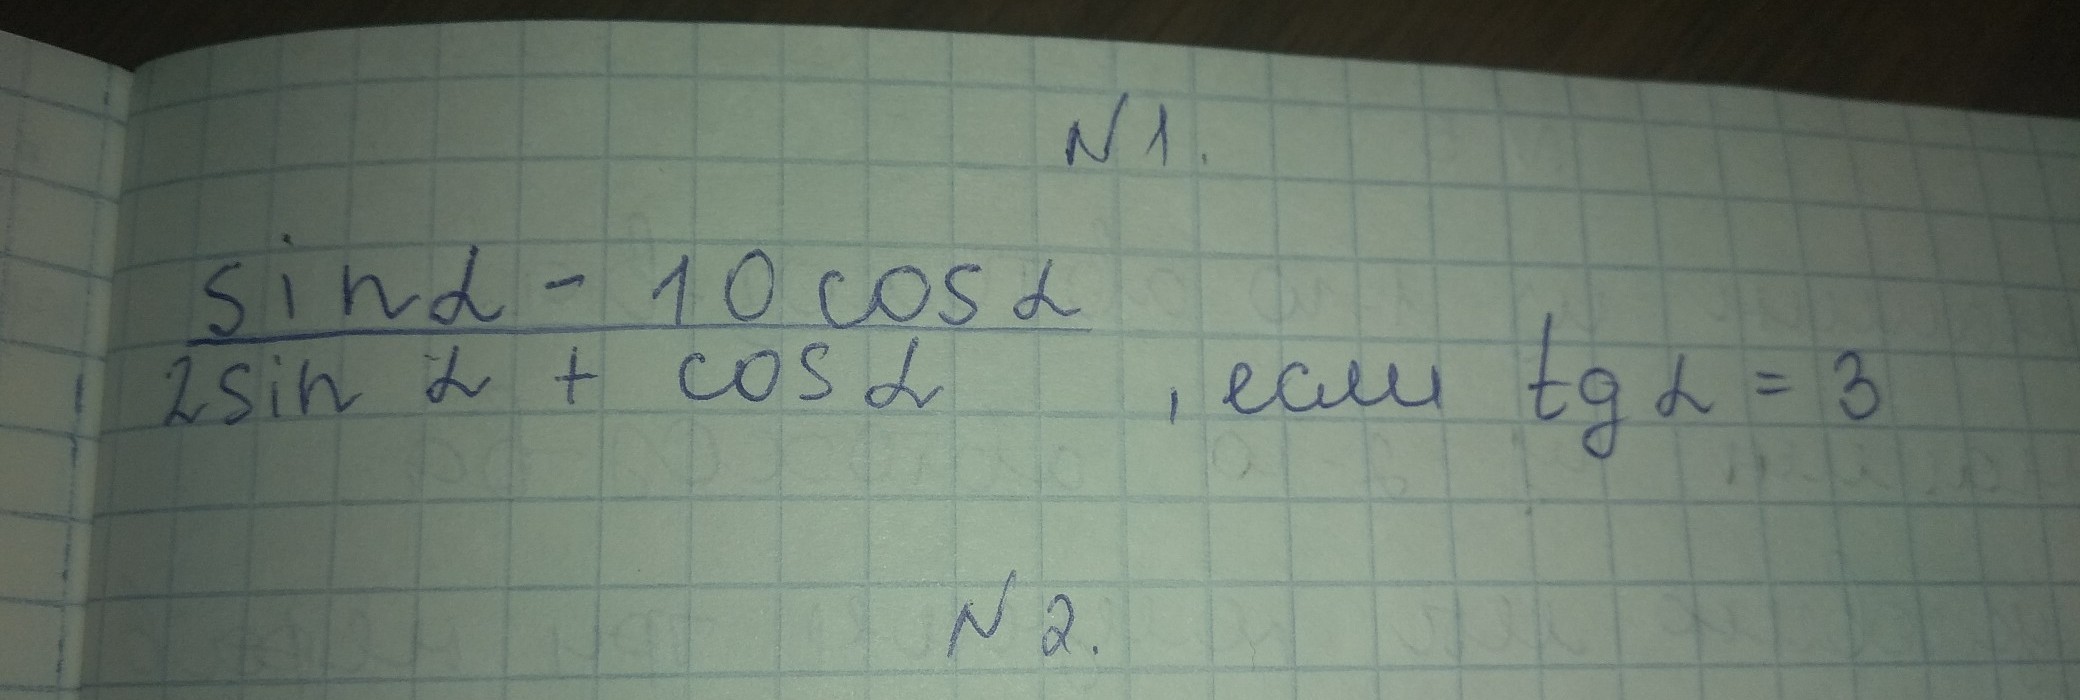 N1.
sin α - 10 cos α
2 sin α + cos α , если tg α = 3
N2.